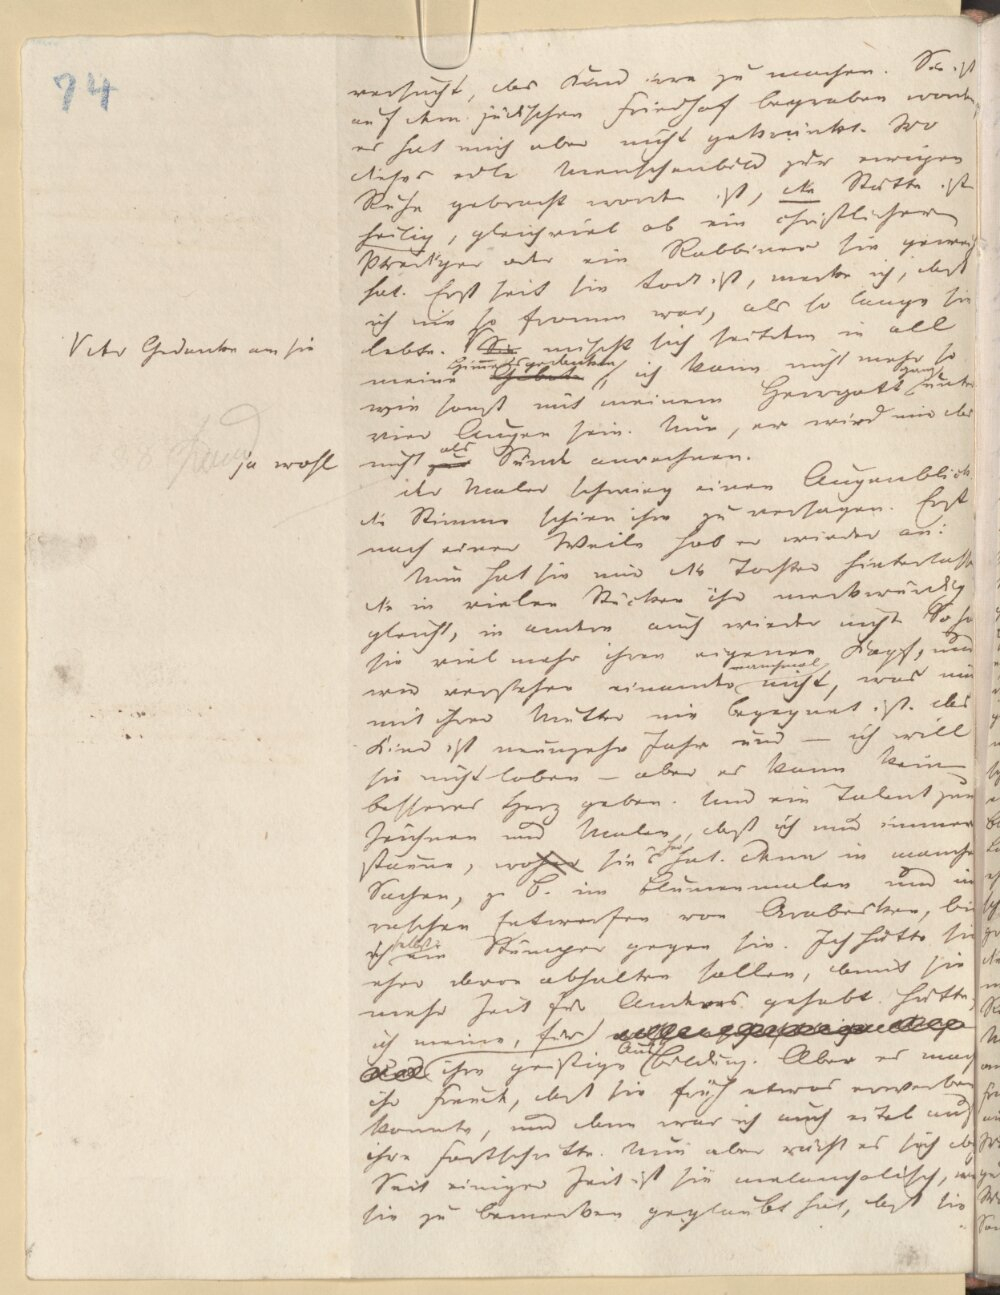 74
versucht, das Kind irre zu machen. Sie ist
auf dem jüdischen Friedhof begraben worden
es hat mich aber nicht gekränkt. Wo
dieses edle Menschenbild zur ewigen
Ruhe gebracht worden ist, die Stätte ist
heilig, gleichviel ob ein christlicher
Prediger oder ein Rabbiner sie geweiht
hat. Erst seit sie todt ist, merke ich, daß
ich nie so fromm war, als so lange sie
lebte. Sie mischt sich seitdem in all
Der Gedanke an sie
meine Himmelsgedanken, ich kann nicht mehr so
wie sonst mit meinem Herrgott ganz unter
vier Augen sein. Nun, er wird mir das
ja wohl
nicht als Sünde anrechnen.
Der Maler schwieg einen Augenblick
die Stimme schien ihm zu versagen. Erst
nach einer Weile hob er wieder an:
Nun hat sie mir die Tochter hinterlassen
die in vielen Stücken ihr merkwürdig
gleicht, in andern auch wieder nicht. So hat
sie viel mehr ihren eigenen Kopf, und
wir verstehen einander manchmal nicht, was mir
mit ihrer Mutter nie begegnet ist. Das
Kind ist neunzehn Jahr und – ich will
sie nicht loben – aber es kann kein
besseres Herz geben. Und ein Talent zum
Zeichnen und Malen, daß ich nur immer
staune, woher sie's hat. Denn in manchen
Sachen, z. B. im Blumenmalen und im
raschen Entwerfen von Arabesken, bin
ich selbst ein Stümper gegen sie. Ich hätte sie
eher davon abhalten sollen, damit sie
mehr Zeit für Anderes gehabt hätte,
ich meine, für
ihre geistige Ausbildung. Aber es machte
ihr Freude, daß sie früh etwas erwerben
konnte, und dann war ich auch eitel auf
ihre Fortschritte. Nun aber rächt es sich
Seit einiger Zeit ist sie melancholisch,
sie zu bemerken geglaubt hat, daß sie